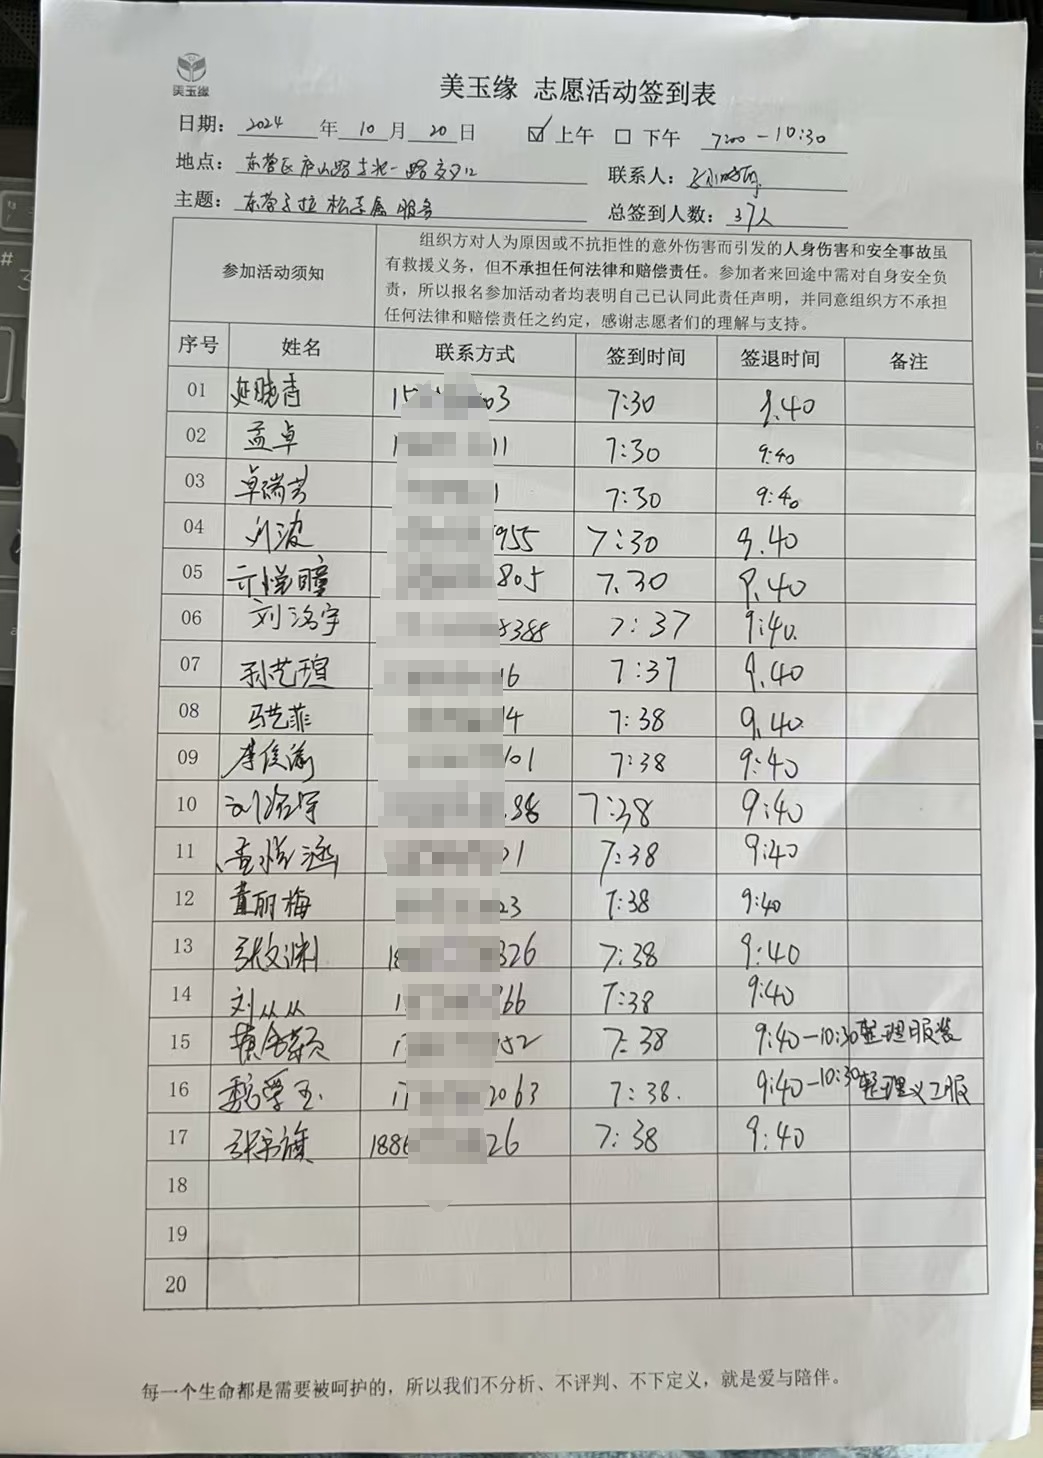 美玉缘
美玉缘 志愿活动签到表
日期：2024年10月20日 ☑上午 □下午 7:00-10:30
地点：东营区庐山路与北一路交叉口
联系人：
主题：东营马拉松 服务
总签到人数：37人
参加活动须知
组织方对人为原因或不抗拒性的意外伤害而引发的人身伤害和安全事故虽
有救援义务，但不承担任何法律和赔偿责任。参加者来回途中需对自身安全负
责，所以报名参加活动者均表明自己已认同此责任声明，并同意组织方不承担
任何法律和赔偿责任之约定，感谢志愿者们的理解与支持。
序号 姓名 联系方式 签到时间 签退时间 备注
01 晓青 15 03 7:30 9.40
02 孟卓 1 11 7:30 9:40
03 卓瑞芳 1 7:30 9:40
04 刘波 955 7:30 9.40
05 805 7.30 9.40
06 刘洺宇 8388 7:37 9:40.
07 孙艺瑄 16 7:37 9.40
08 马艺菲 14 7:38 9.40
09 李俊渝 101 7:38 9:40
10 刘 宇 88 7:38 9:40
11 孟悦涵 01 7:38 9:40
12 董丽梅 23 7:38 9:40
13 张文渊 18 326 7:38 9:40
14 刘从从 1 66 7:38 9:40
15 1 52 7:38 9:40-10:30 整理服装
16 魏 玉 17 2063 7:38. 9:40-10:30 整理义工服
17 张宇旗 188 26 7:38 9:40
18
19
20
每一个生命都是需要被呵护的，所以我们不分析、不评判、不下定义，就是爱与陪伴。